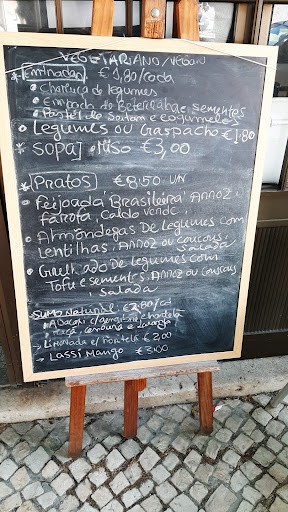 VEGETARIANO/VEGANO
Entradas €1,80/cada
• Chamuça de legumes
• Empada de Beterraba e sementes
• Pastel de Seitan e cogumelos
• Legumes ou Gaspacho €1.80
* SOPA €3,00
Pratos €8.50 UN
• Feijoada 'Brasileira' Arroz,
farofa, Caldo verde,
• Almôndegas De legumes com
lentilhas, Arroz ou couscous,
Salada
• Guelhado De legumes com
Tofu e sementes, Arroz ou couscous,
Salada
SUMO Natural €2.80/cd
• Abacaxi c/gengibre e hortelã
• Maçã cenoura e laranja
• Limonada c/hortelã €2,00
• LASSI Mango €3.00